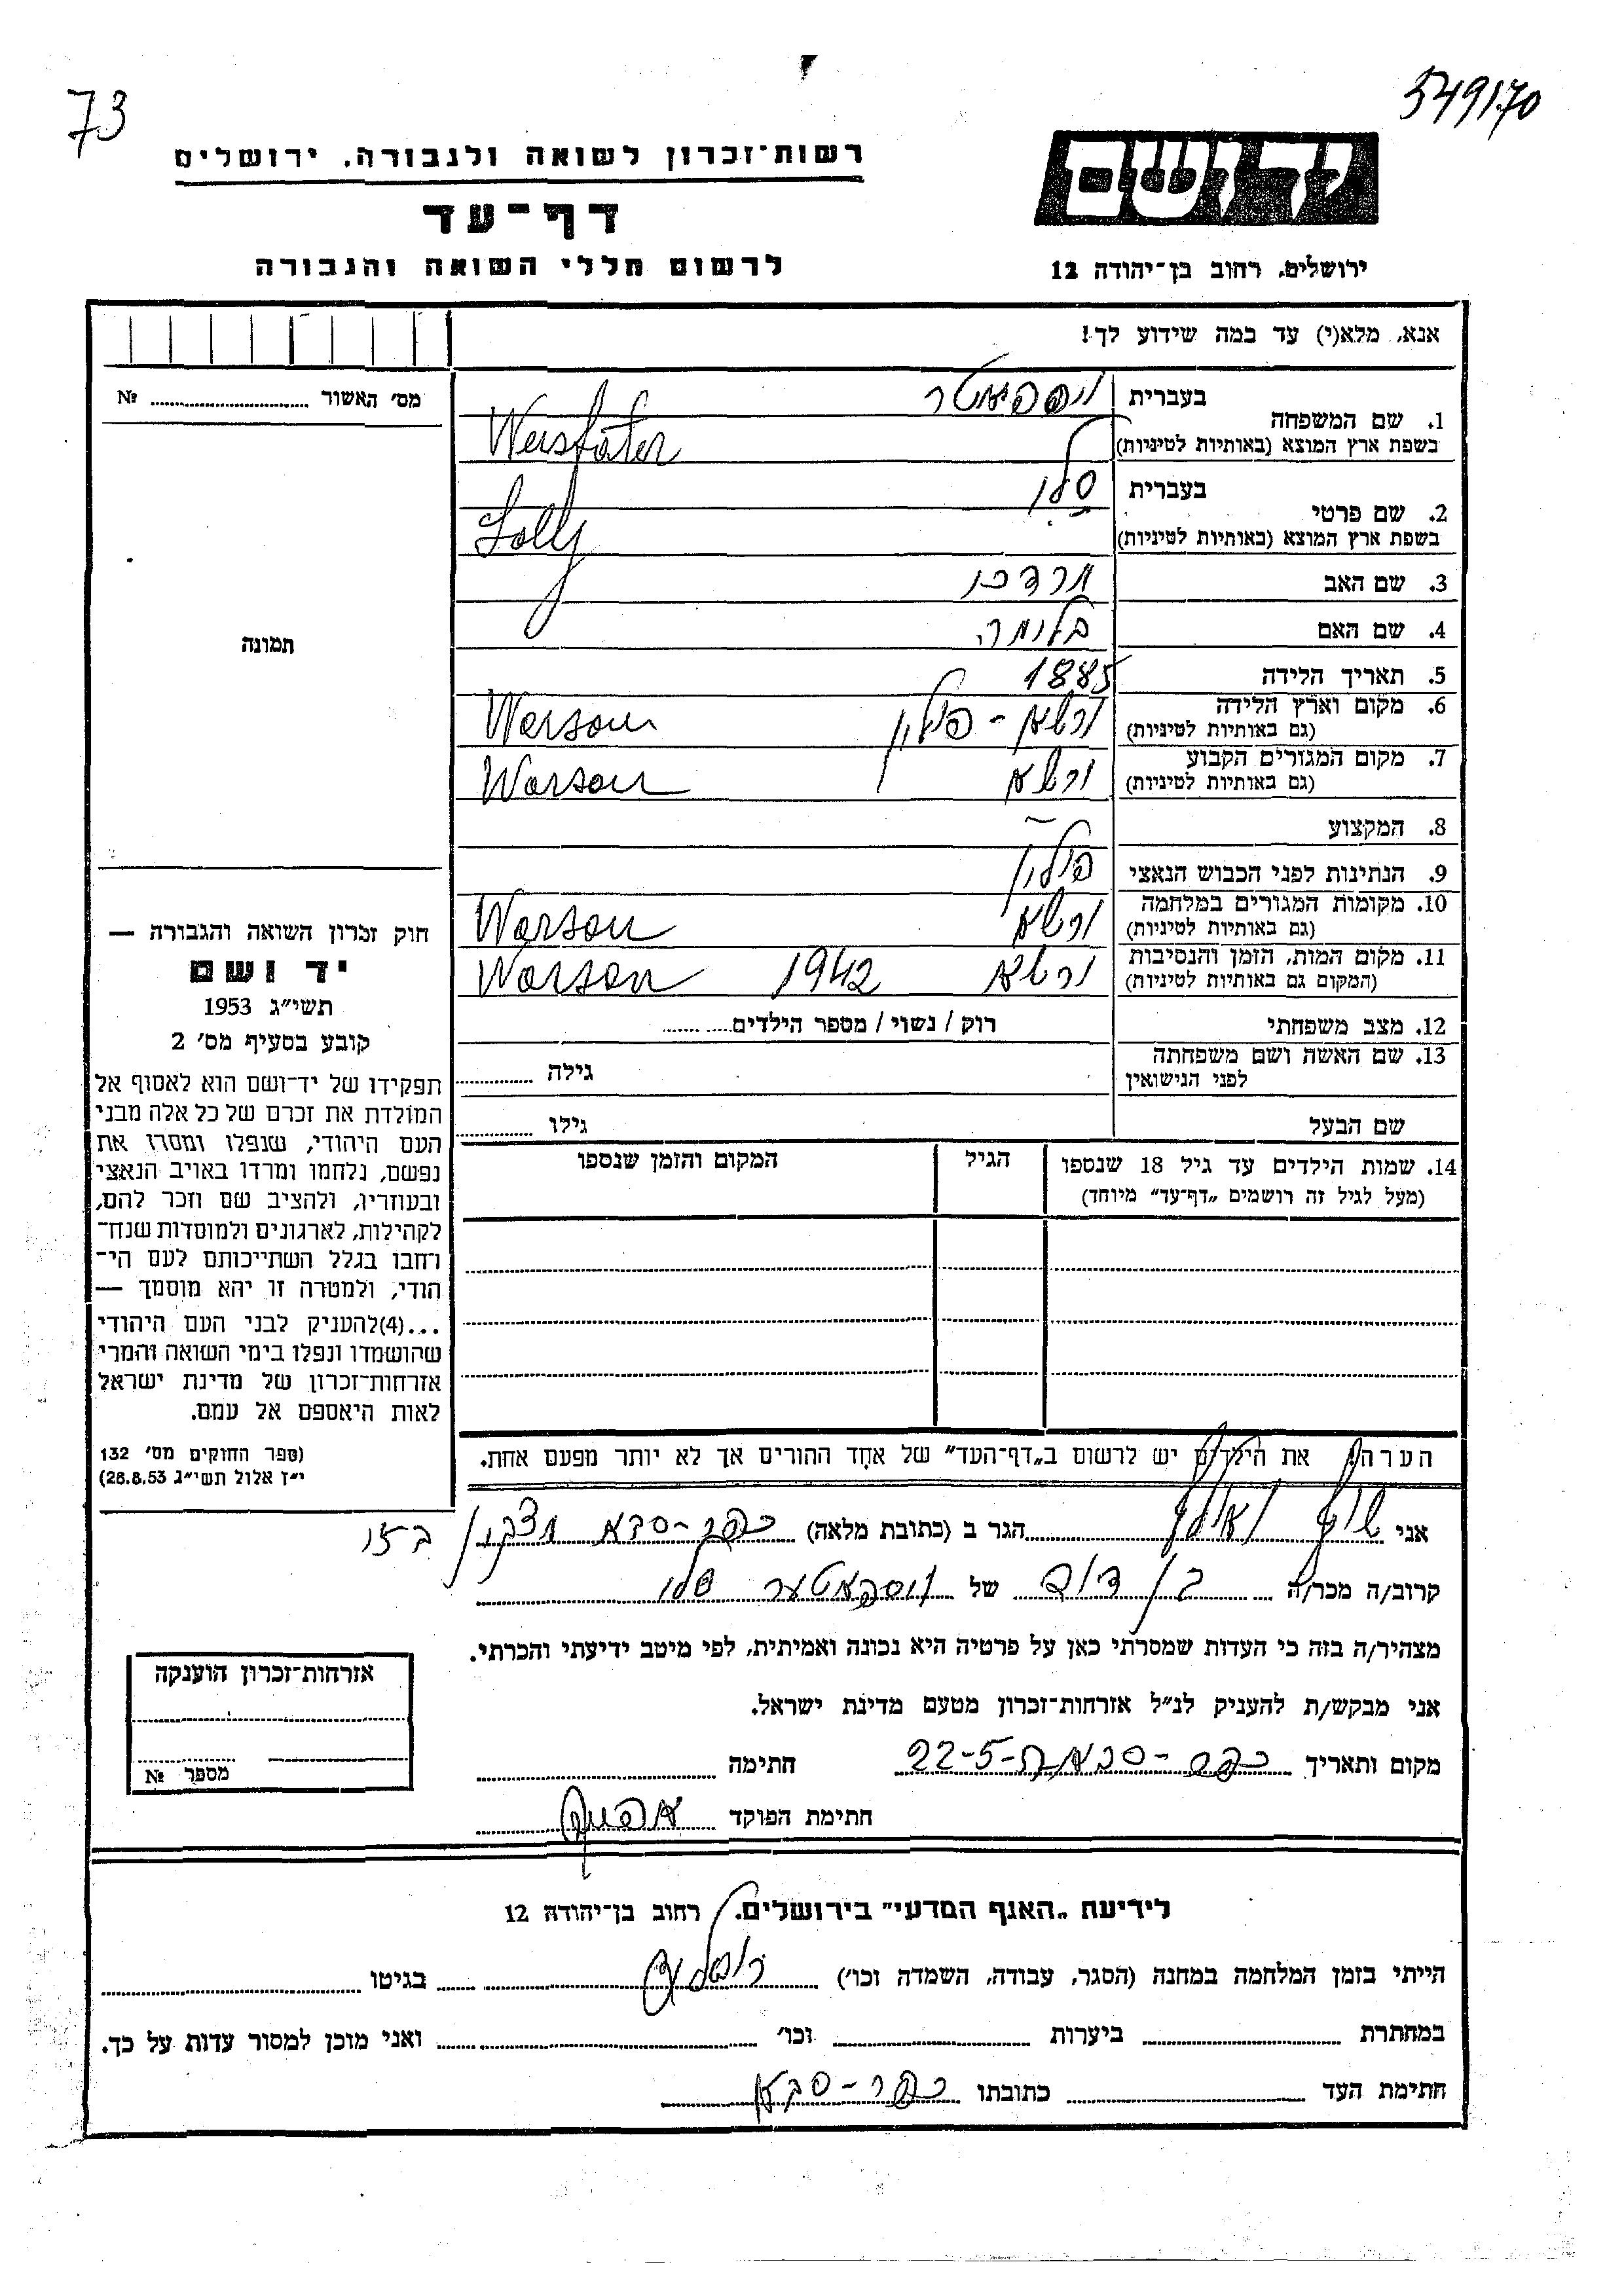 73
549170
ידושם
רשות־זכרון לשואה ולגבורה, ירושלים
דף־עד
לרשום חללי השואה והגבורה
ירושלים, רחוב בן־יהודה 12
אנא, מלא(י) עד כמה שידוע לך!
מס' האשור № ........
תמונה
1. שם המשפחה בעברית וייספאטר
בשפת ארץ המוצא (באותיות לטיניות) Weisfater
2. שם פרטי בעברית סלי
בשפת ארץ המוצא (באותיות לטיניות) Solly
3. שם האב מרדכי
4. שם האם בלומה
5. תאריך הלידה 1885
6. מקום וארץ הלידה ורשא - פולין Warsau
(גם באותיות לטיניות)
7. מקום המגורים הקבוע ורשא Warsau
(גם באותיות לטיניות)
8. המקצוע –
9. הנתינות לפני הכבוש הנאצי פולין
10. מקומות המגורים במלחמה ורשא Warsau
(גם באותיות לטיניות)
11. מקום המות, הזמן והנסיבות ורשא 1942 Warsau
(המקום גם באותיות לטיניות)
12. מצב משפחתי רוק / נשוי / מספר הילדים........
13. שם האשה ושם משפחתה
לפני הנישואין גילה ........
שם הבעל גילו ........
14. שמות הילדים עד גיל 18 שנספו הגיל המקום והזמן שנספו
(מעל לגיל זה רושמים „דף־עד" מיוחד)
חוק זכרון השואה והגבורה —
יד ושם
תשי"ג 1953
קובע בסעיף מס' 2
תפקידו של יד־ושם הוא לאסוף אל
המולדת את זכרם של כל אלה מבני
העם היהודי, שנפלו ומסרו את
נפשם, נלחמו ומרדו באויב הנאצי
ובעוזריו, ולהציב שם וזכר להם,
לקהילות, לארגונים ולמוסדות שנח־
רחבו בגלל השתייכותם לעם הי־
הודי, ולמטרה זו יהא מוסמך —
...(4)להעניק לבני העם היהודי
שהושמדו ונפלו בימי השואה והמרי
אזרחות־זכרון של מדינת ישראל
לאות היאספם אל עמם.
(ספר החוקים מס' 132
י"ז אלול תשי"ג 28.8.53)
הערה את הילדים יש לרשום ב„דף־העד" של אחד ההורים אך לא יותר מפעם אחת.
אני ........ הגר ב (כתובת מלאה) כפר-סבא
קרוב/ה מכר/ה בן דוד של וייספאטר סלי
מצהיר/ה בזה כי העדות שמסרתי כאן על פרטיה היא נכונה ואמיתית, לפי מיטב ידיעתי והכרתי.
אני מבקש/ת להעניק לנ"ל אזרחות־זכרון מטעם מדינת ישראל.
מקום ותאריך כפר-סבא 22-5- חתימה ........
חתימת הפוקד
אזרחות־זכרון הוענקה
מספר №
לידיעת „האגף המדעי" בירושלים, רחוב בן־יהודה 12
הייתי בזמן המלחמה במחנה (הסגר, עבודה, השמדה וכו') ........ בגיטו ........
במחתרת ........ ביערות ........ וכו' ........ ואני מוכן למסור עדות על כך.
חתימת העד ........ כתובתו כפר-סבא